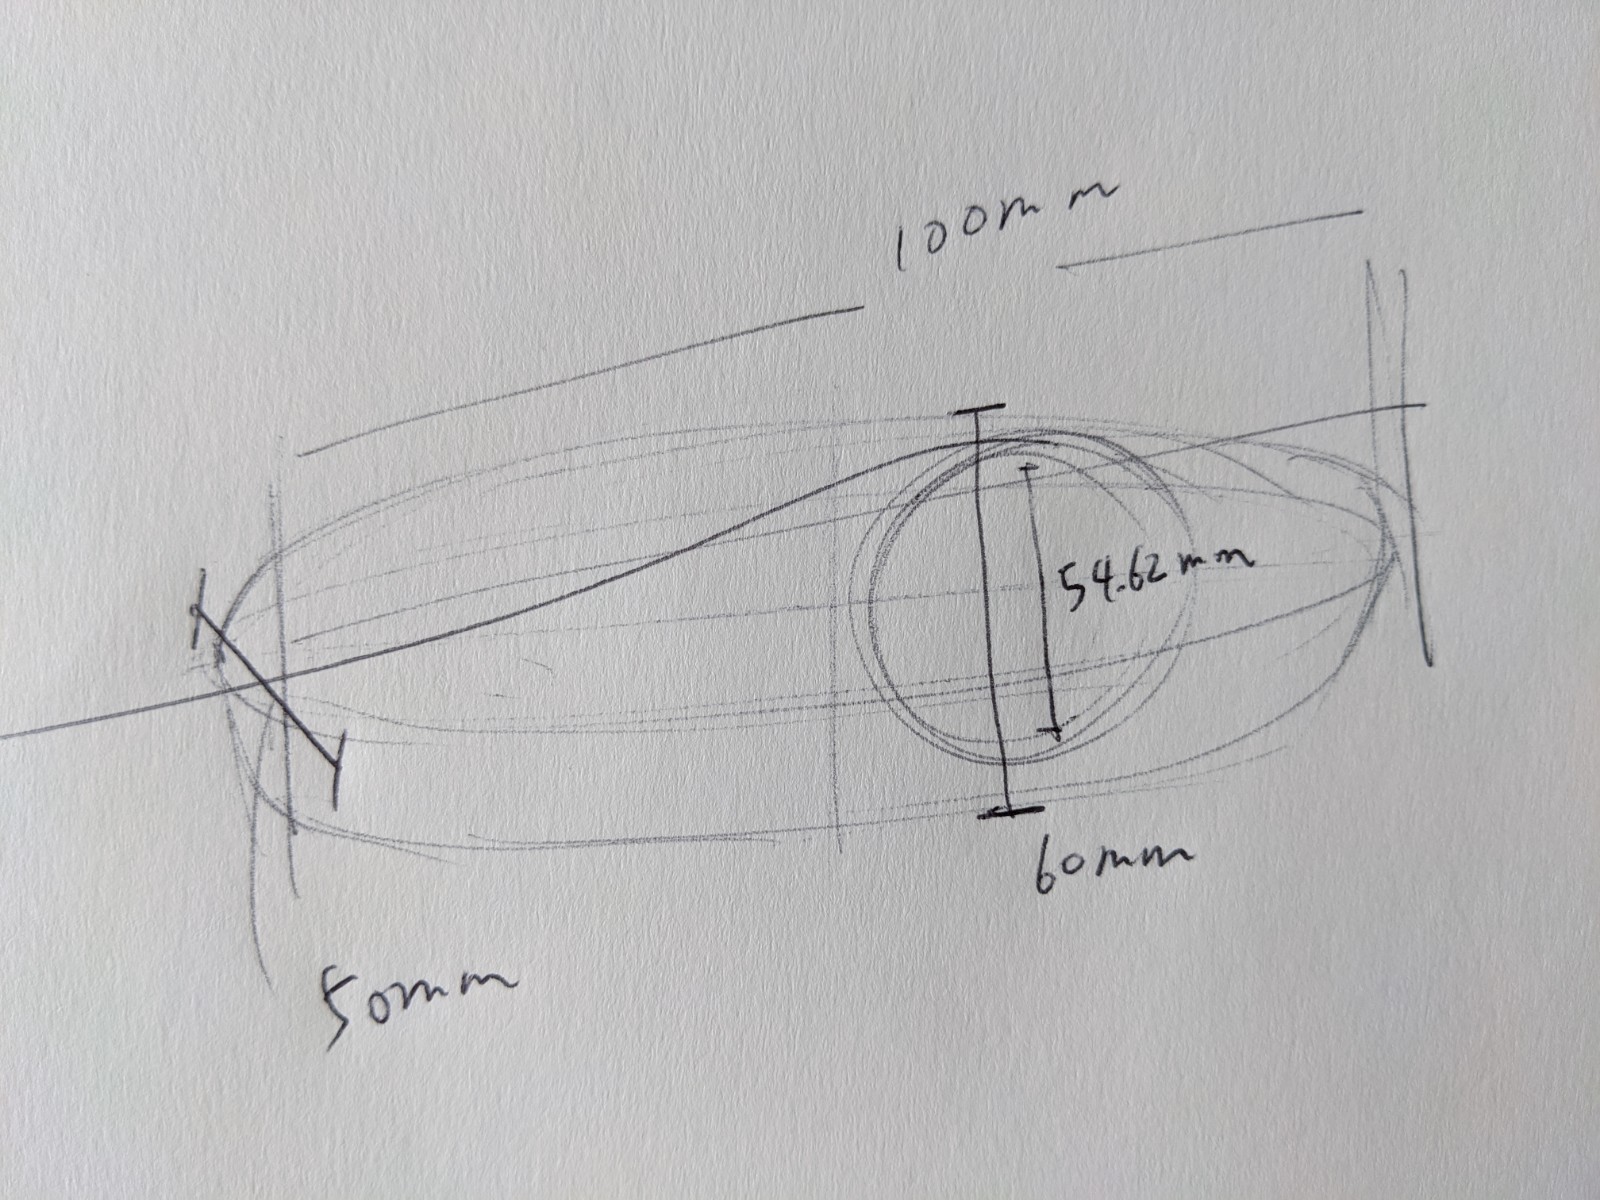 100mm
54.62mm
60mm
50mm